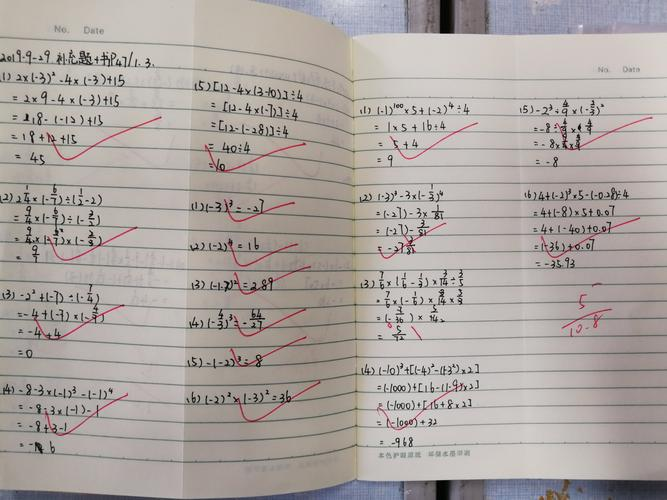 No. Date
2019.9.29 补充题+书P47/1.3.
(1) 2×(-3)²-4×(-3)+15
=2×9-4×(-3)+15
=18-(-12)+15
=18+12+15
=45
(2) 2¼×(-6/7)÷(½-2)
=9/4×(-6/7)÷(-3/2)
=9/4×(-6/7)×(-2/3)
=9/7
(3) -2²+(-7)÷(-7/4)
=-4+(-7)×(-4/7)
=-4+4
=0
(4) -8-3×(-1)³-(-1)⁴
=-8-3×(-1)-1
=-8+3-1
=-6
(5) [12-4×(3-10)]÷4
=[12-4×(-7)]÷4
=[12-(-28)]÷4
=40÷4
=10
(1) (-3)³=-27
(2) (-2)⁴=16
(3) (-1.7)²=2.89
(4) (-4/3)³=-64/27
(5) -(-2)³=8
(6) (-2)²×(-3)²=36
No. Date
(1) (-1)¹⁰⁰×5+(-2)⁴÷4
=1×5+16÷4
=5+4
=9
(2) (-3)³-3×(-1/3)⁴
=(-27)-3×1/81
=(-27)-3/81
(3) 7/6×(1/6-1/3)×3/14÷3/5
(4) (-10)³+[(-4)²-(1-3²)×2]
=(-1000)+[16-(1-9)×2]
=(-1000)+[16+8×2]
=(-1000)+32
=-968
(5) -2³÷4/9×(-2/3)²
=-8÷4/9×4/9
=-8×9/4×4/9
=-8
(6) 4+(-2)³×5-(-0.28)÷4
=4+(-8)×5+0.07
=4+(-40)+0.07
=(-36)+0.07
=-35.93
5
10.8
本色护眼原纸 环保水墨印刷